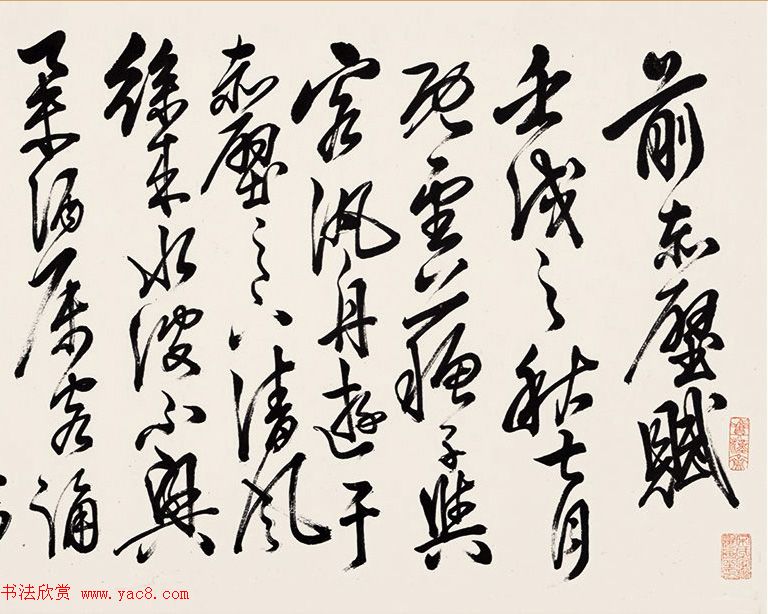 前赤壁賦
壬戌之秋七月
既望蘇子與
客汎舟遊于
赤壁之下清風
徐來水波不興
舉酒屬客誦
书法欣赏 www.yac8.com